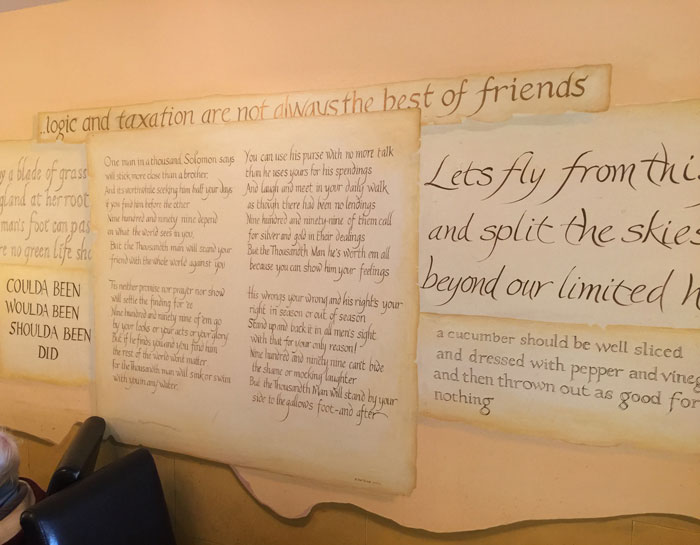 ..logic and taxation are not always the best of friends
y a blade of grass
gland at her root
man's foot can pas
re no green life sho
COULDA BEEN
WOULDA BEEN
SHOULDA BEEN
DID
One man in a thousand Solomon says
will stick more close than a brother
And it's worthwhile seeking him half your days
if you find him before the other
Nine hundred and ninety nine depend
on what the world sees in you
But the Thousandth man will stand your
friend with the whole world against you
'Tis neither promise nor prayer nor show
will settle the finding for 'ee
Nine hundred and ninety nine of 'em go
by your looks or your acts or your glory
But if he finds you and you find him
the rest of the world don't matter
For the Thousandth man will sink or swim
with you in any water.
You can use his purse with no more talk
than he uses yours for his spendings
And laugh and meet in your daily walk
as though there had been no lendings
Nine hundred and ninety-nine of them call
for silver and gold in their dealings
But the Thousandth Man he's worth em all
because you can show him your feelings
His wrong's your wrong and his right's your
right in season or out of season
Stand up and back it in all men's sight
with that for your only reason!
Nine hundred and ninety nine can't bide
the shame or mocking laughter
But the Thousandth Man will stand by your
side to the gallows foot-and after
Lets fly from this
and split the skies
beyond our limited
a cucumber should be well sliced
and dressed with pepper and vineg
and then thrown out as good for
nothing